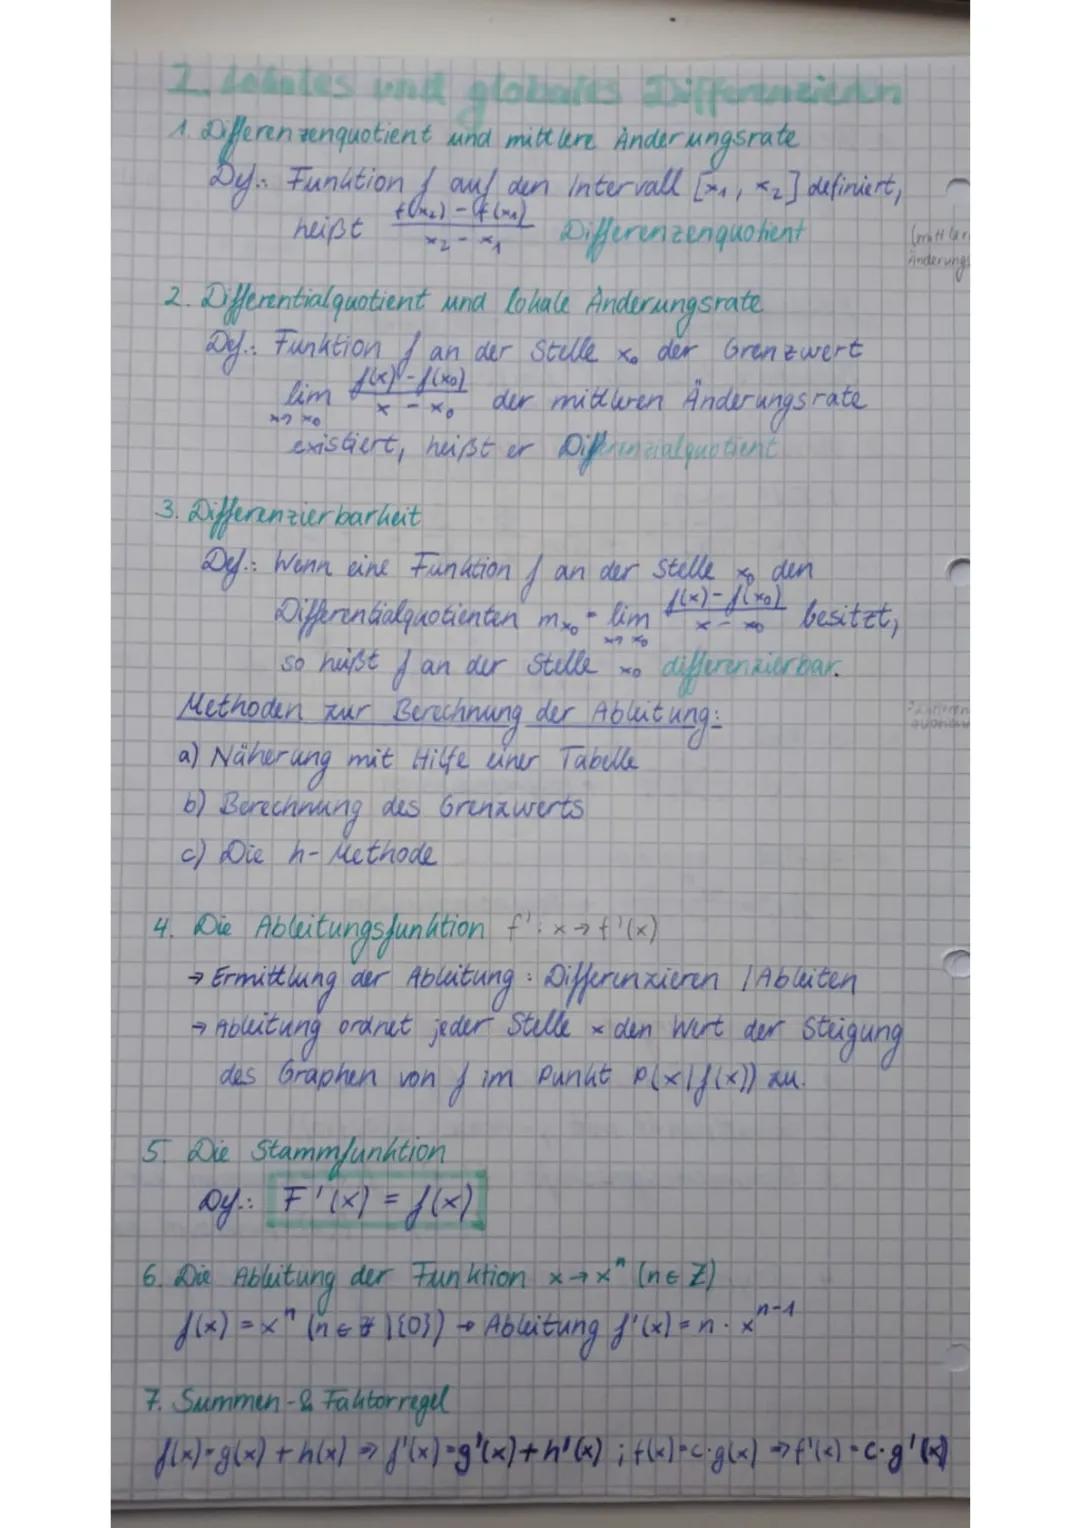 2. Lokales und globales Differenzieren
1. Differenzenquotient und mittlere Änderungsrate
Def.: Funktion f auf den Intervall [x₁, x₂] definiert,
heißt (f(x₂) - f(x₁))/(x₂ - x₁) Differenzenquotient
2. Differentialquotient und lokale Änderungsrate
Def.: Funktion f an der Stelle x₀ der Grenzwert
lim x→x₀ (f(x) - f(x₀))/(x - x₀) der mittleren Änderungsrate
existiert, heißt er Differenzialquotient
3. Differenzierbarkeit
Def.: Wenn eine Funktion f an der Stelle x₀ den
Differentialquotienten mx₀ = lim x→x₀ (f(x) - f(x₀))/(x - x₀) besitzt,
so heißt f an der Stelle x₀ differenzierbar.
Methoden zur Berechnung der Ableitung:
a) Näherung mit Hilfe einer Tabelle
b) Berechnung des Grenzwerts
c) Die h-Methode
4. Die Ableitungsfunktion f': x → f'(x)
→ Ermittlung der Ableitung: Differenzieren / Ableiten
→ Ableitung ordnet jeder Stelle x den Wert der Steigung
des Graphen von f im Punkt P(x|f(x)) zu.
5. Die Stammfunktion
Def.: F'(x) = f(x)
6. Die Ableitung der Funktion x → xⁿ (n ∈ Z)
f(x) = xⁿ (n ∈ Z \ {0}) → Ableitung f'(x) = n · xⁿ⁻¹
7. Summen- & Faktorregel
f(x) = g(x) + h(x) ⇒ f'(x) = g'(x) + h'(x) ; f(x) = c·g(x) ⇒ f'(x) = c·g'(x)